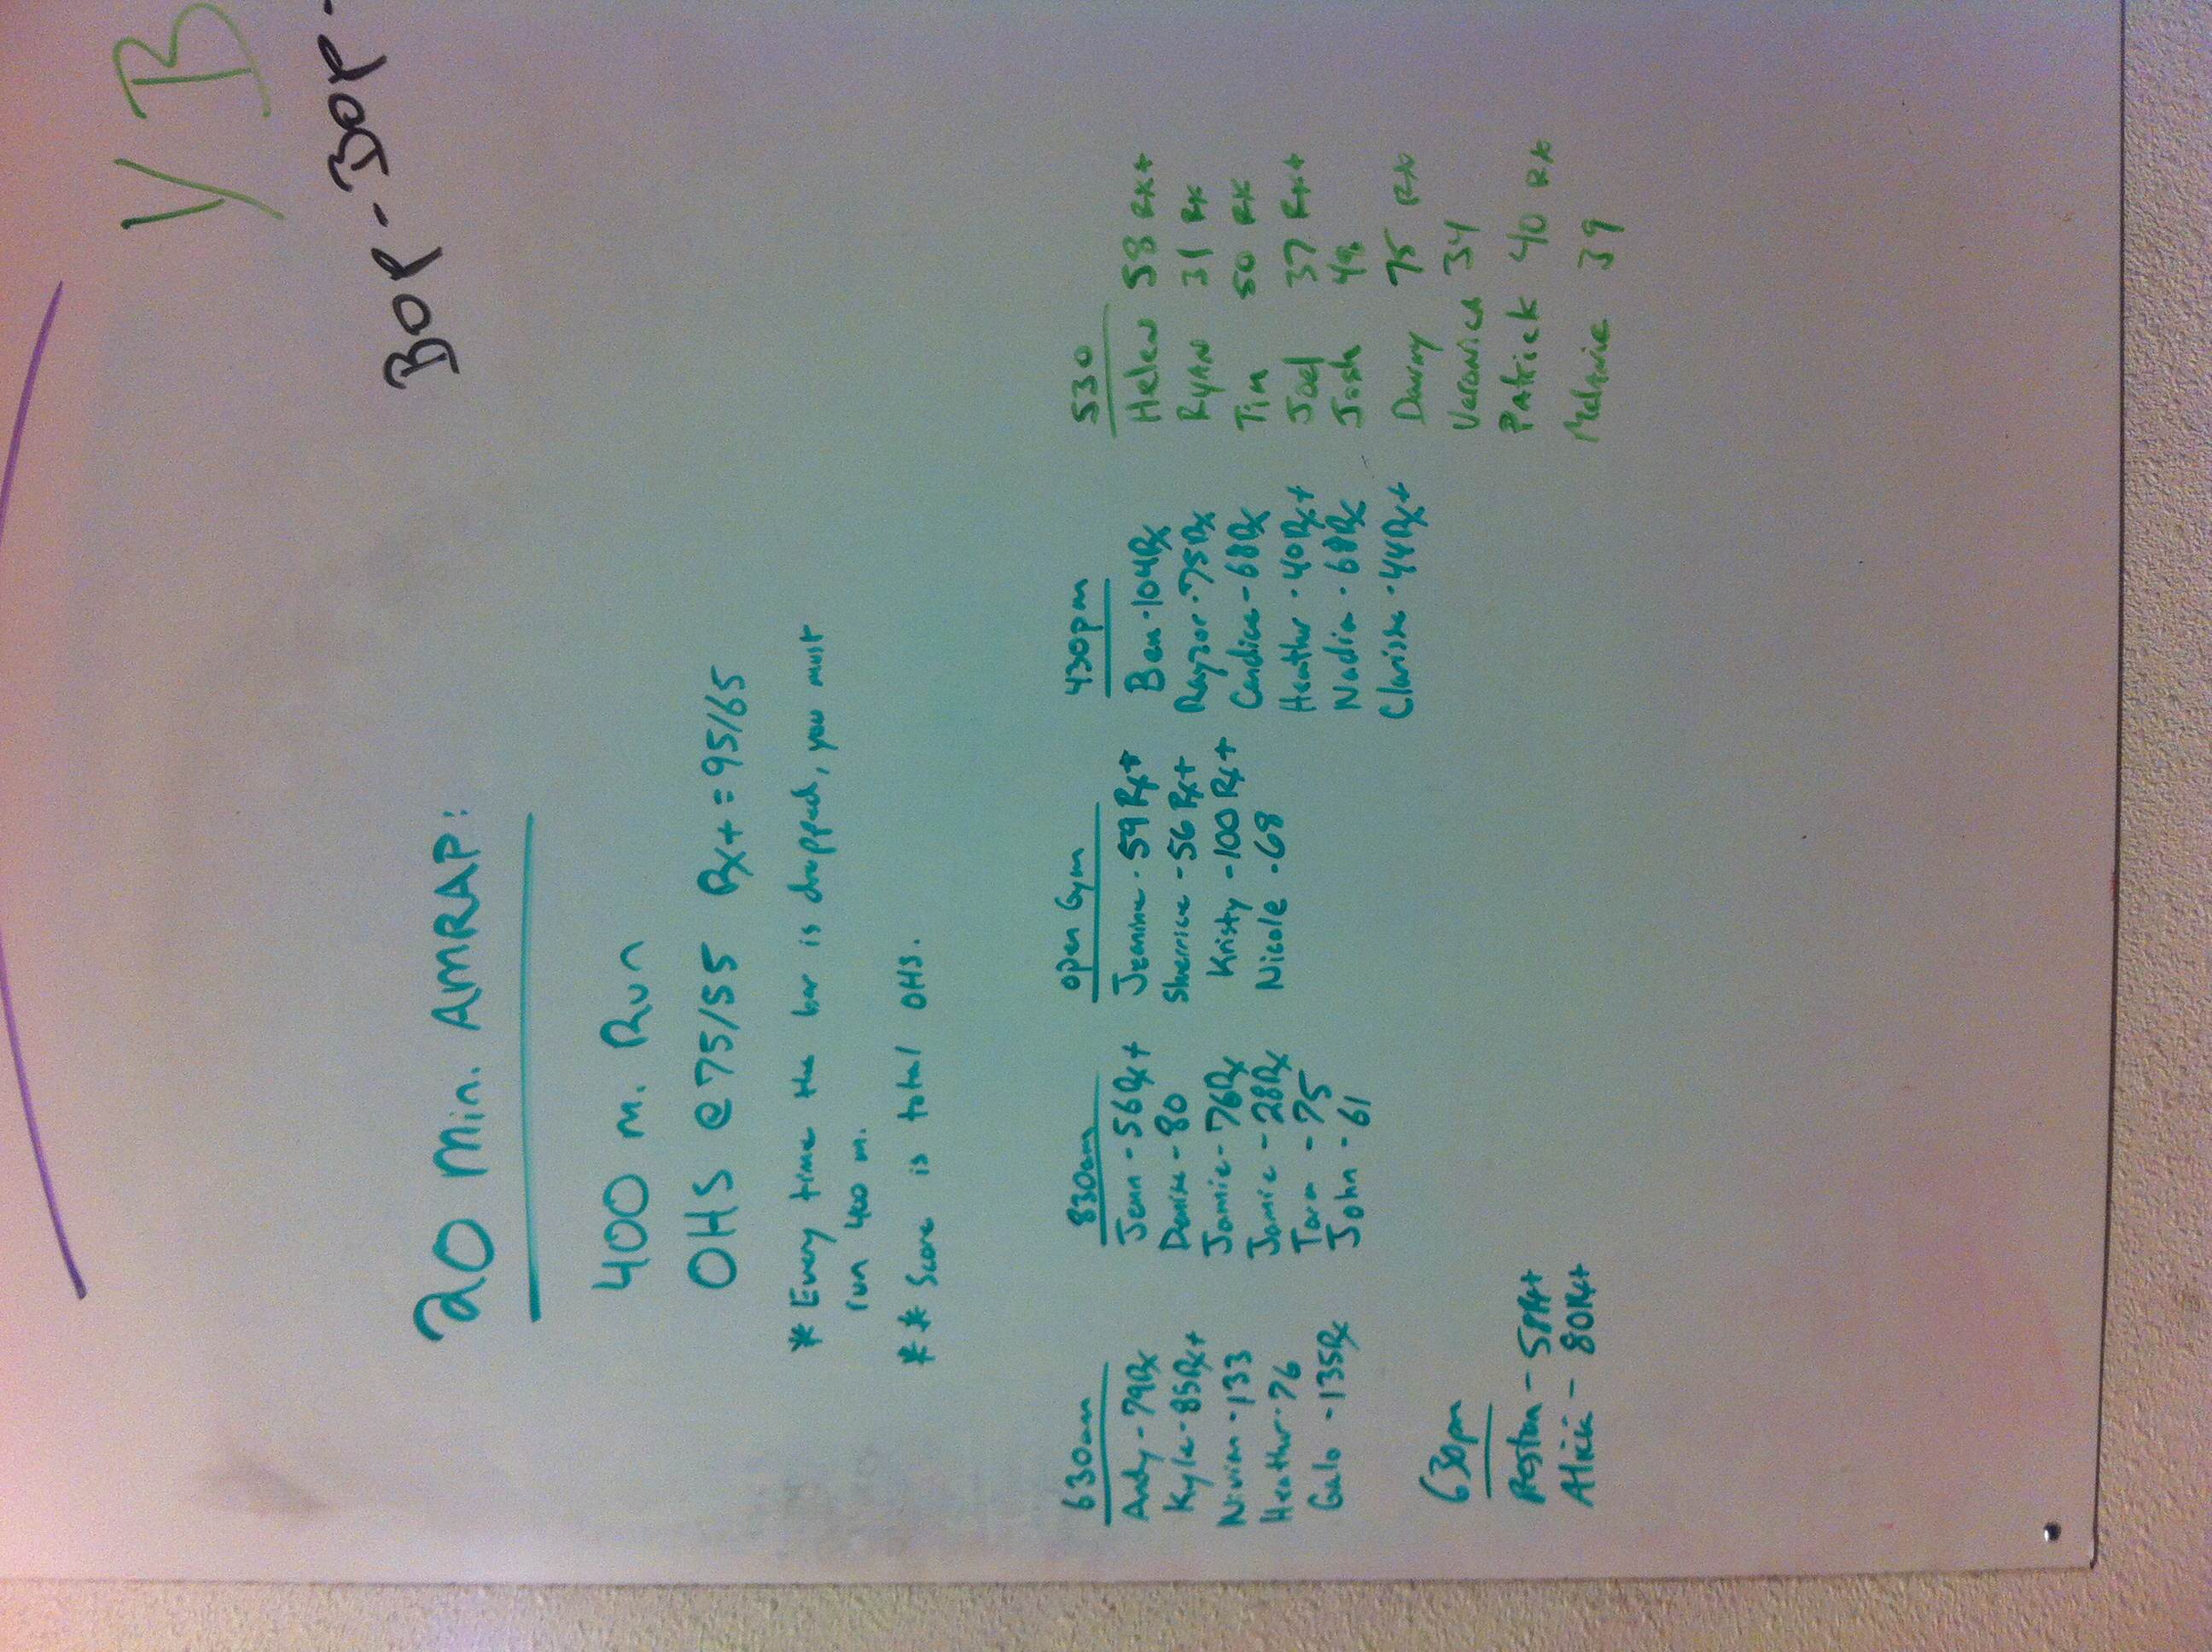 Y B
BOP-BOP-
20 Min. AMRAP:
400 m. Run
OHS @ 75/55 Rx+ = 95/65
* Every time the bar is dropped, you must
run 400 m.
** Score is total OHS.
630am
Andy - 79Rx
Kyle - 85Rx+
Nivian - 133
Heather - 76
Galo - 135Rx
830am
Jenn - 56Rx+
Denise - 80
Jamie - 76Rx
Jamie - 28Rx
Tara - 75
John - 61
open Gym
Jeanine - 59 Rx+
Sherrice - 56 Rx+
Kristy - 100 Rx+
Nicole - 68
430pm
Ben - 104Rx
Rayzor - 75Rx
Candice - 68Rx
Heather - 40Rx+
Nadia - 68Rx
Clarisha - 44Rx+
530
Helen 58 Rx+
Ryan 31 Rx
Tim 50 Rx
Joel 37 Rx+
Josh 48
Danny 75 Rx
Veronica 34
Patrick 40 Rx
Melanie 39
630pm
Alicia - 80Rx+